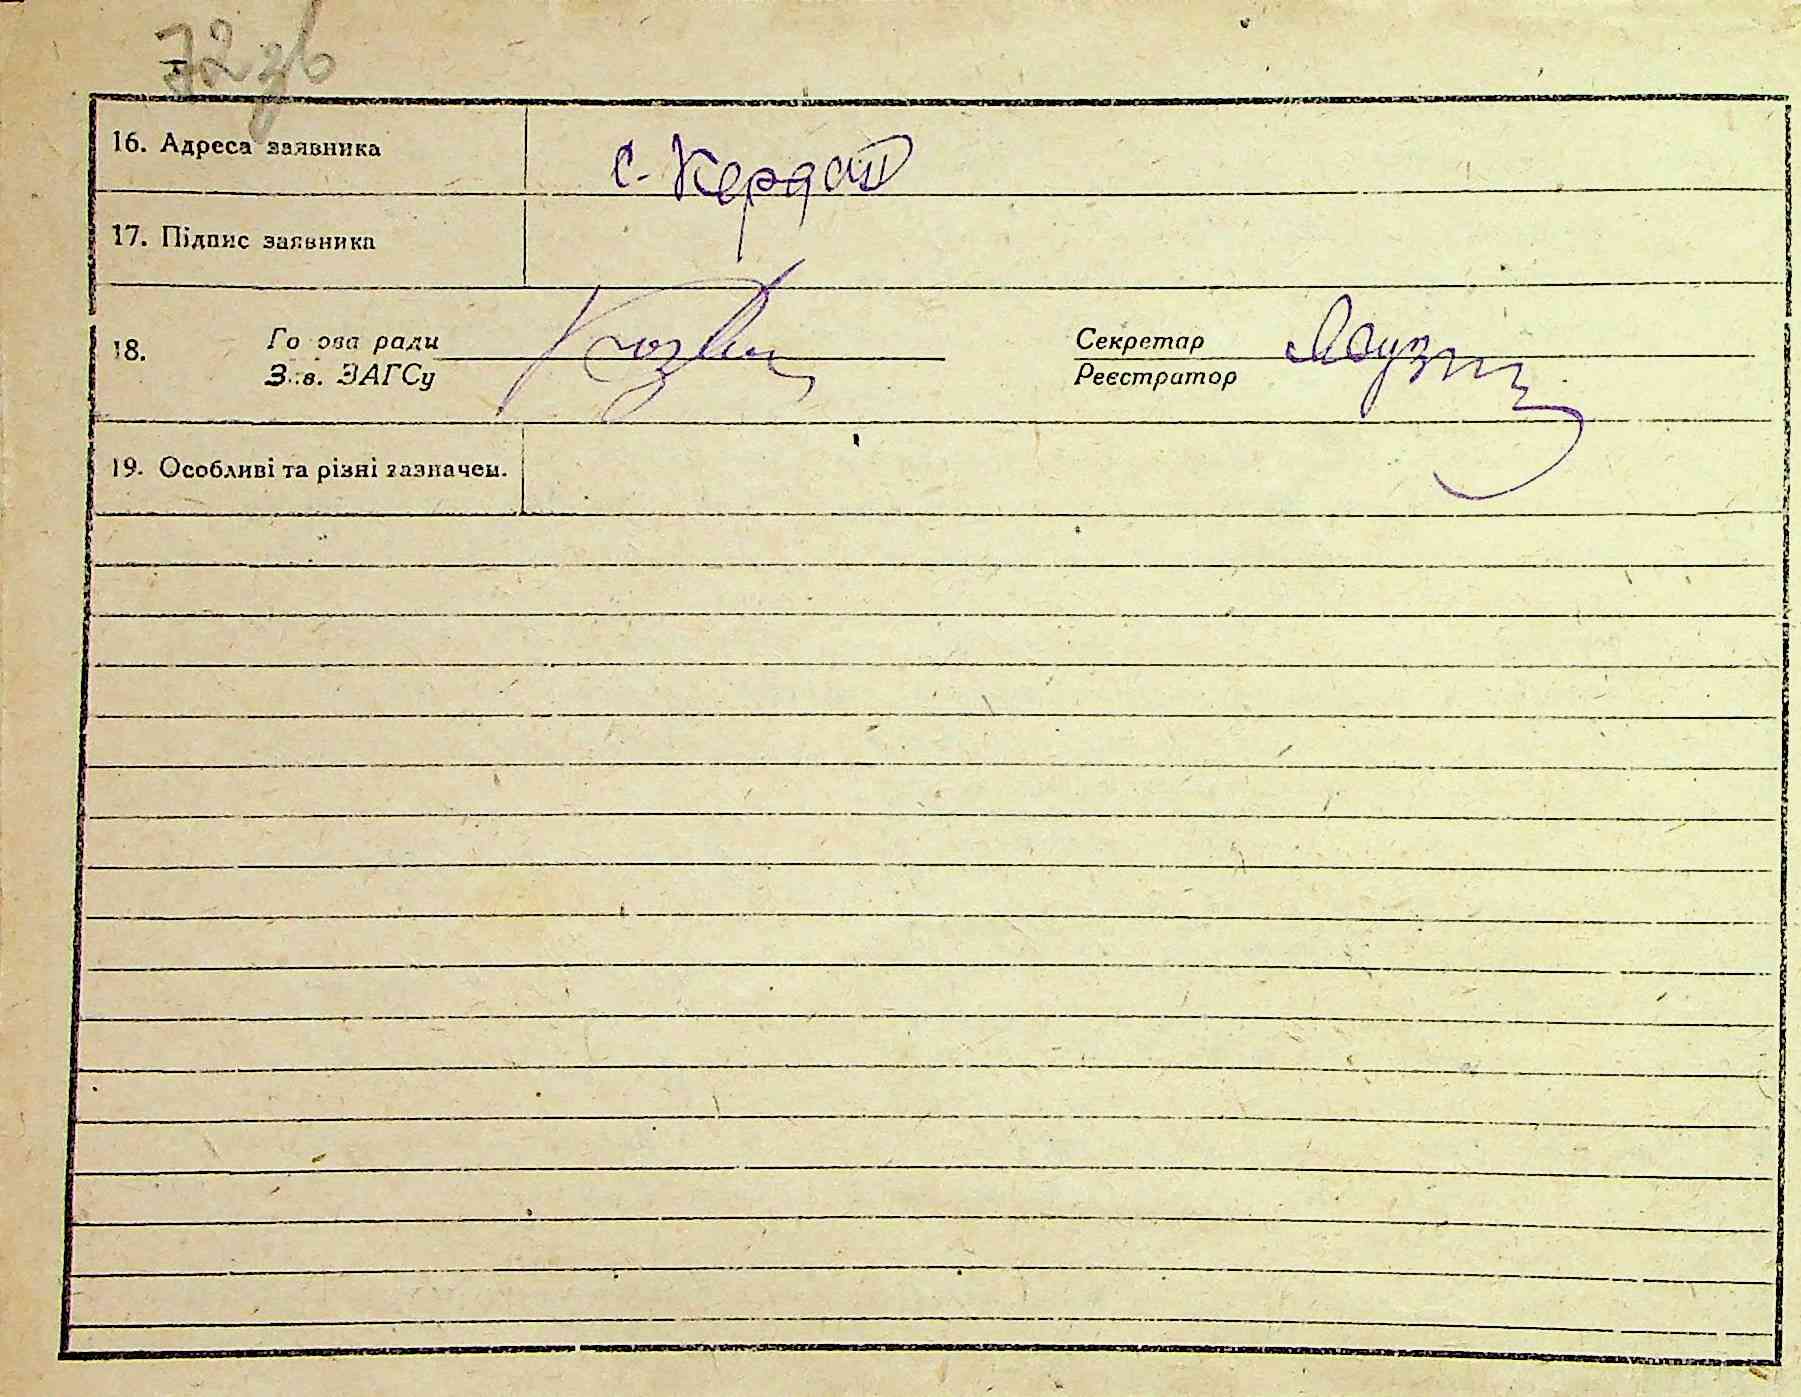 72 зв
16. Адреса заявника
с. Кердан
17. Підпис заявника
18.
Го ова ради
Секретар
З.:в. ЗАГСу
Реєстратор
19. Особливі та різні зазначен.